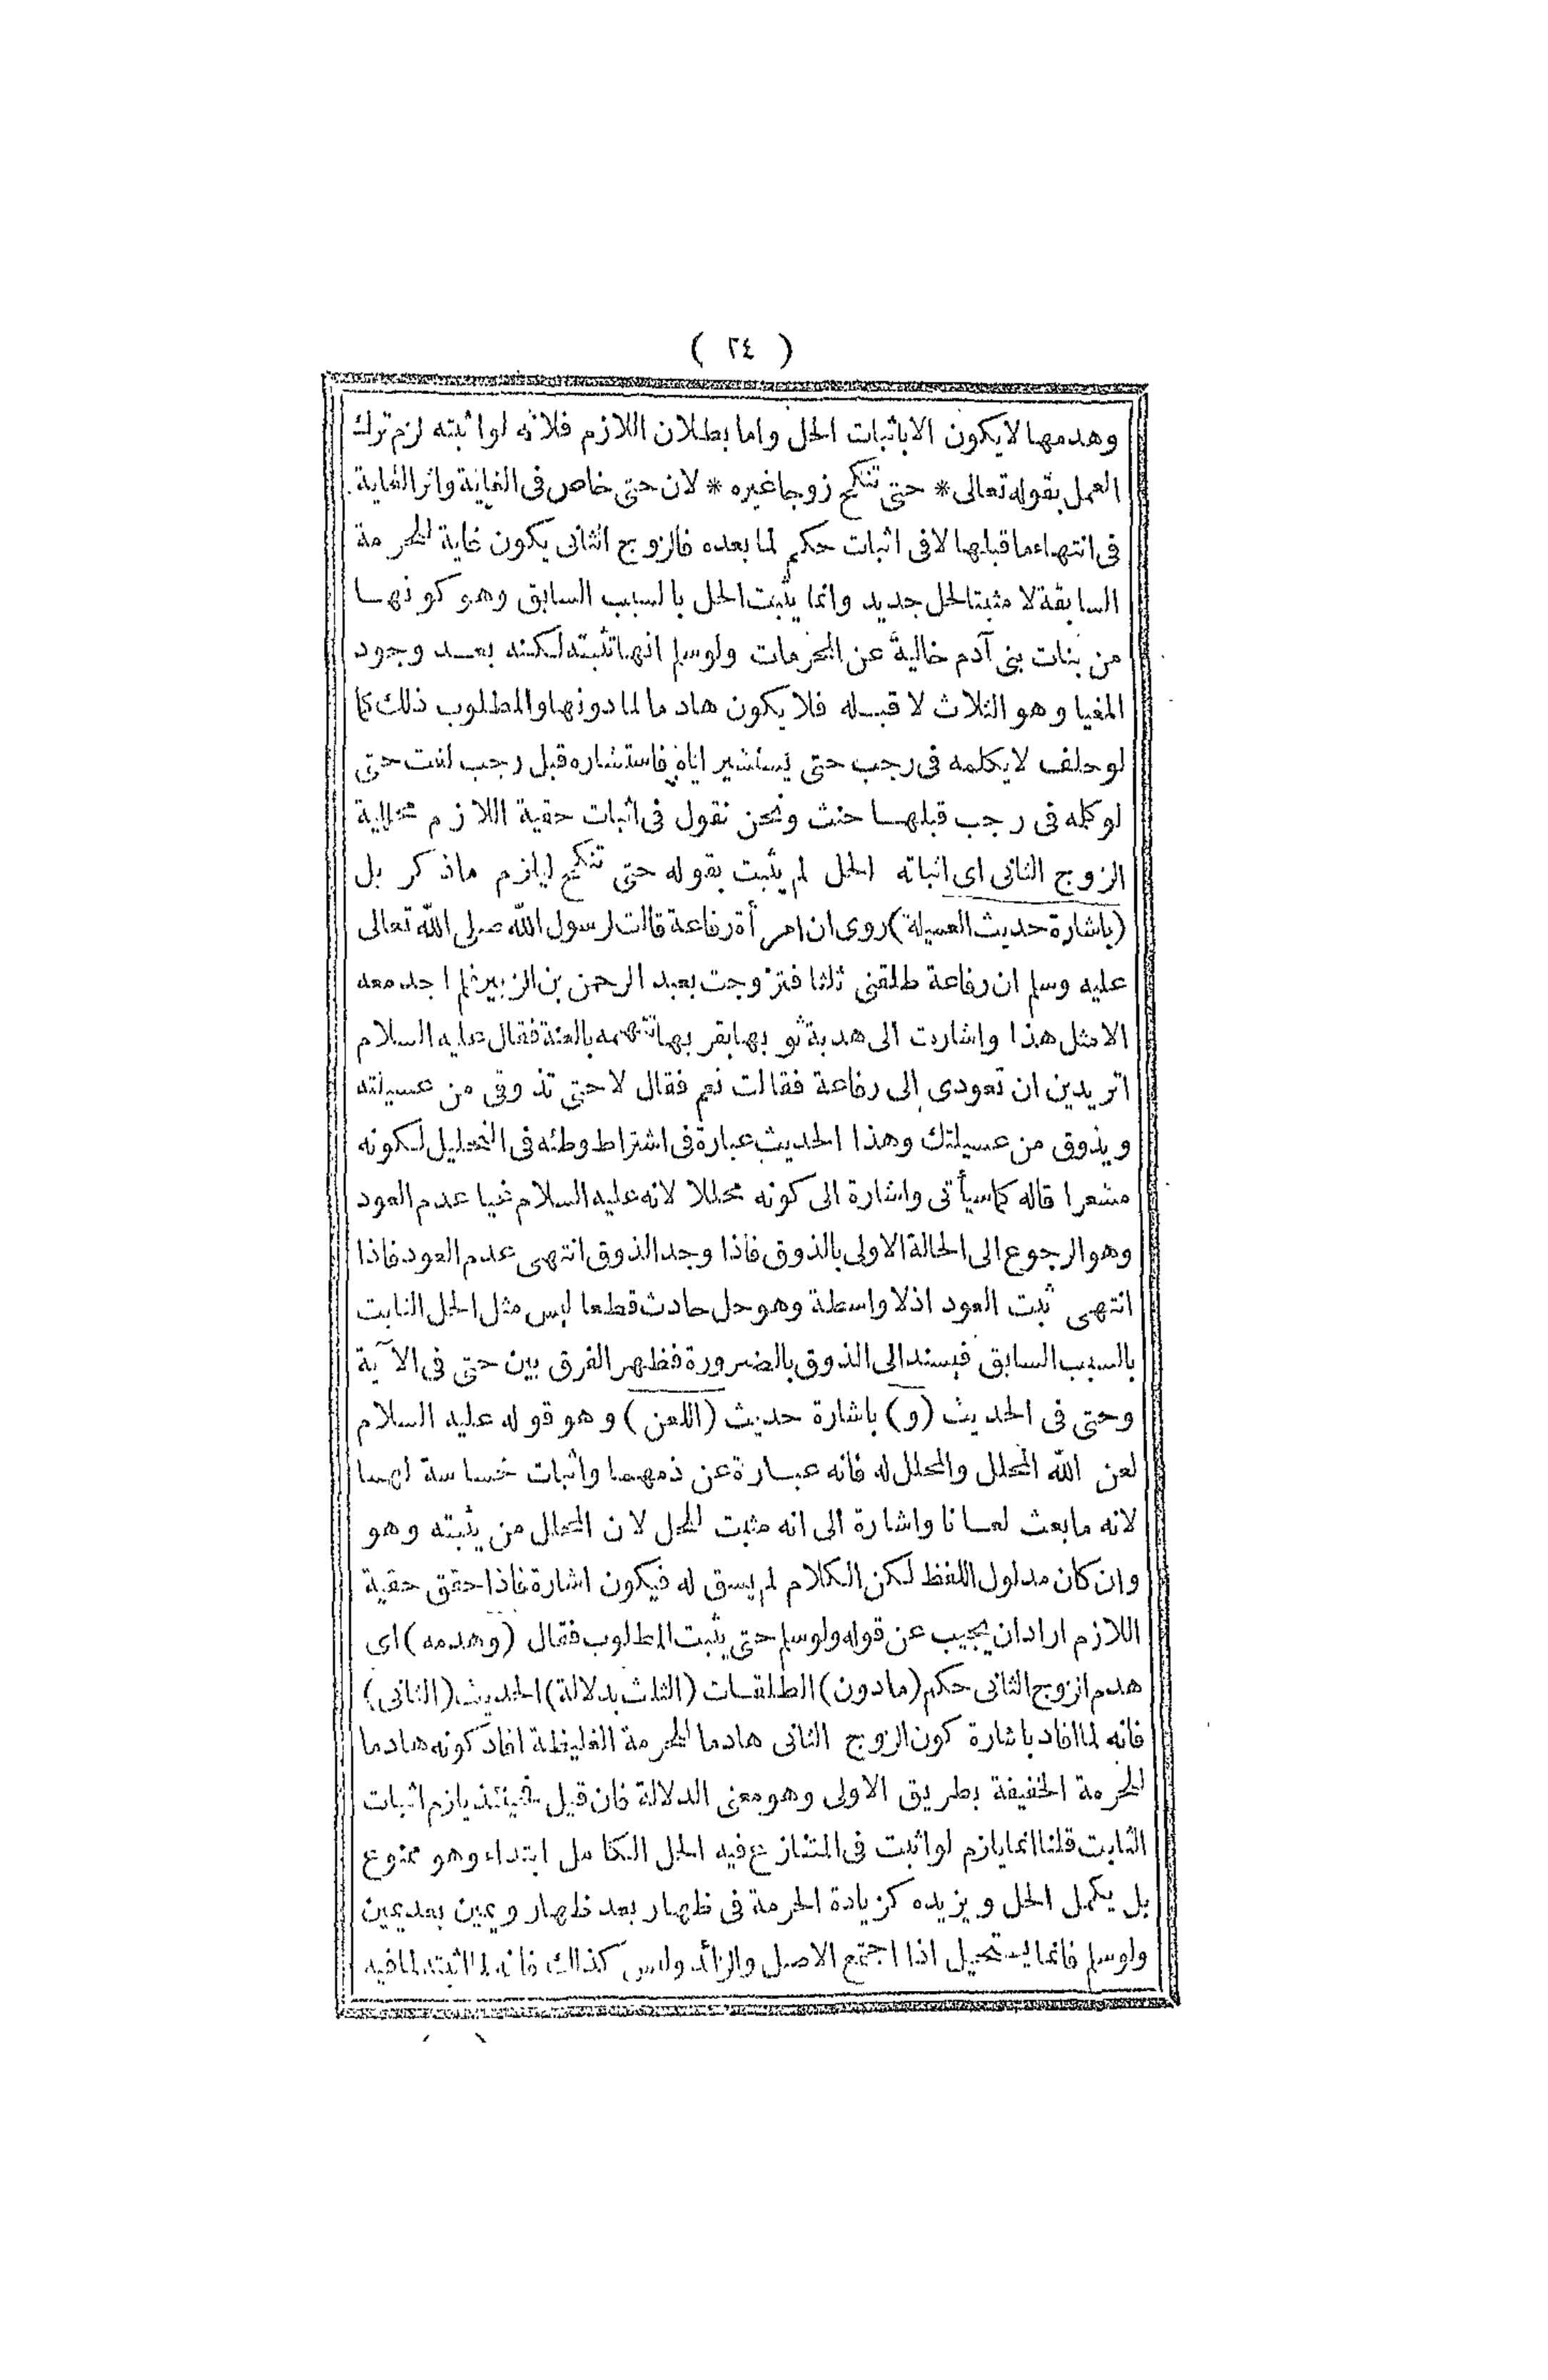 ( ٢٤ )
وهدمها لايكون الاباثبات الحل واما بطلان اللازم فلانه لواثبته لزم ترك
العمل بقوله تعالى * حتى تنكح زوجا غيره * لان حتى خاص فى الغاية واثر الغاية
فى انتهاء ما قبلها لافى اثبات حكم لما بعده فالزوج الثانى يكون غاية للحرمة
السابقة لا مثبتا لحل جديد وانما يثبت الحل بالسبب السابق وهو كونهـا
من بنات بنى آدم خالية عن المحرمات ولوسلم انها تثبته لكنه بعـد وجود
المغيا وهو الثلاث لا قبـله فلا يكون هادما لما دونها والمطلوب ذلك كما
لو حلف لايكلمه فى رجب حتى يستشير اباه فاستشاره قبل رجب لغت حتى
لو كلمه فى رجب قبلهـا حنث ونحن نقول فى اثبات حقية اللازم محللية
الزوج الثانى اى اثباته الحل لم يثبت بقوله حتى تنكح ليلزم ماذكر بل
(باشارة حديث العسيلة) روى ان امرأة رفاعة قالت لرسول الله صلى الله تعالى
عليه وسلم ان رفاعة طلقنى ثلثا فتزوجت بعبد الرحمن بن الزبير فلم اجد معه
الامثل هذا واشارت الى هدبة ثوبها بقربها تتهمه بالعنة فقال عليه السلام
اتريدين ان تعودى الى رفاعة فقالت نعم فقال لاحتى تذوقى من عسيلته
ويذوق من عسيلتك وهذا الحديث عبارة فى اشتراط وطئه فى التحليل لكونه
مشعرا قاله كماسيأتى واشارة الى كونه محللا لانه عليه السلام غيا عدم العود
وهو الرجوع الى الحالة الاولى بالذوق فاذا وجد الذوق انتهى عدم العود فاذا
انتهى ثبت العود اذلا واسطة وهو حل حادث قطعا ليس مثل الحل الثابت
بالسبب السابق فيسند الى الذوق بالضرورة فظهر الفرق بين حتى فى الآية
وحتى فى الحديث (و) باشارة حديث (اللعن) وهو قوله عليه السلام
لعن الله المحلل والمحلل له فانه عبـارة عن ذمهما واثبات خساسة لهما
لانه مابعث لعـانا واشارة الى انه مثبت للحل لان المحلل من يثبته وهو
وان كان مدلول اللفظ لكن الكلام لم يسق له فيكون اشارة فاذا حقق حقية
اللازم اراد ان يجيب عن قوله ولوسلم حتى يثبت المطلوب فقال (وهدمه) اى
هدم الزوج الثانى حكم (مادون) الطلقـات (الثلث بدلالة) الحديث (الثانى)
فانه لما افاد باشارة كون الزوج الثانى هادما للحرمة الغليظة افاد كونه هادما
للحرمة الخفيفة بطريق الاولى وهو معنى الدلالة فان قيل فحينئذ يلزم اثبات
الثابت قلنا انما يلزم لواثبت فى المتنازع فيه الحل الكامل ابتداء وهو ممنوع
بل يكمل الحل ويزيده كزيادة الحرمة فى ظهار بعد ظهار ويمين بعد يمين
ولوسلم فانما يستحيل اذا اجتمع الاصل والزائد وليس كذلك فانه لما اثبته لما فيه